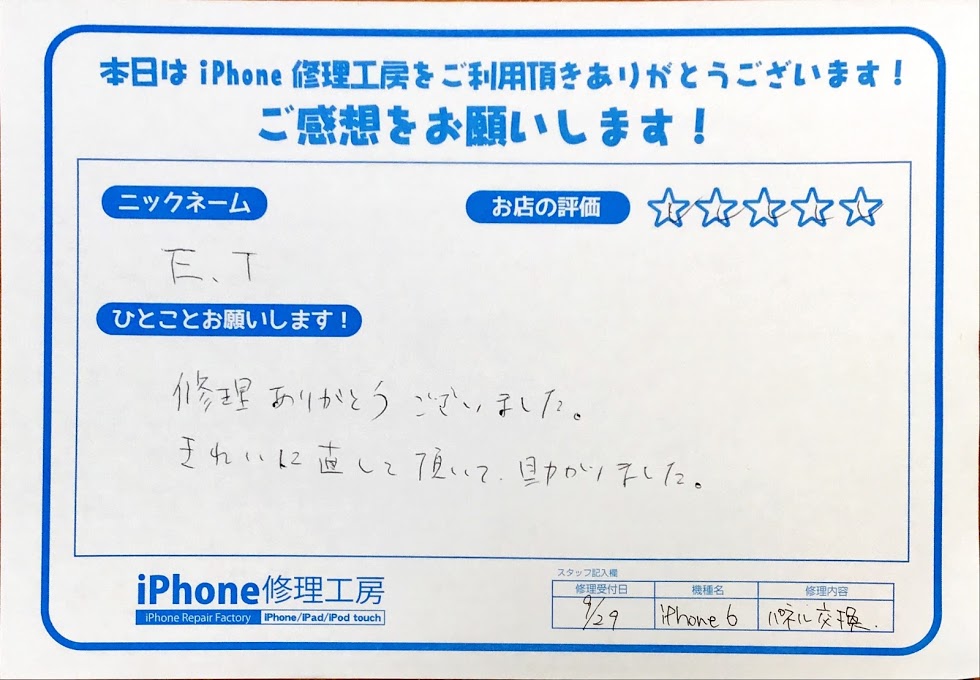 本日は iPhone 修理工房をご利用頂きありがとうございます！
ご感想をお願いします！
ニックネーム
お店の評価
E、T
ひとことお願いします！
修理ありがとうございました。
きれいに直して頂いて、助かりました。
iPhone修理工房
iPhone Repair Factory iPhone/iPad/iPod touch
スタッフ記入欄
修理受付日 機種名 修理内容
9/29 iPhone6 パネル交換.